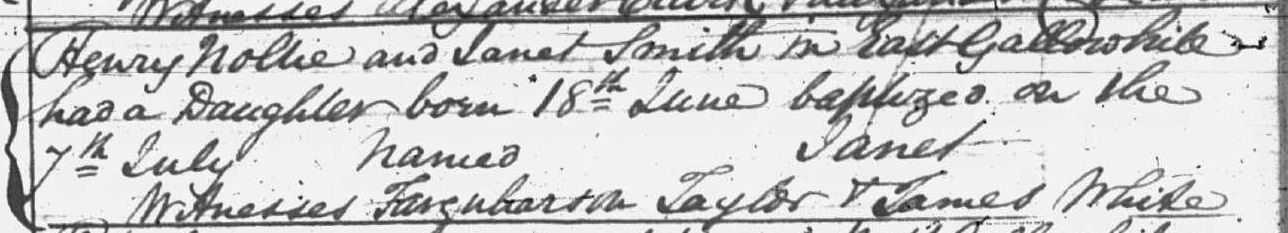 Witnesses Alexander
Henry Nollie and Janet Smith in East Gallowhite
had a Daughter born 18th June baptized on the
7th July named Janet
Witnesses Farquharson Taylor & James White